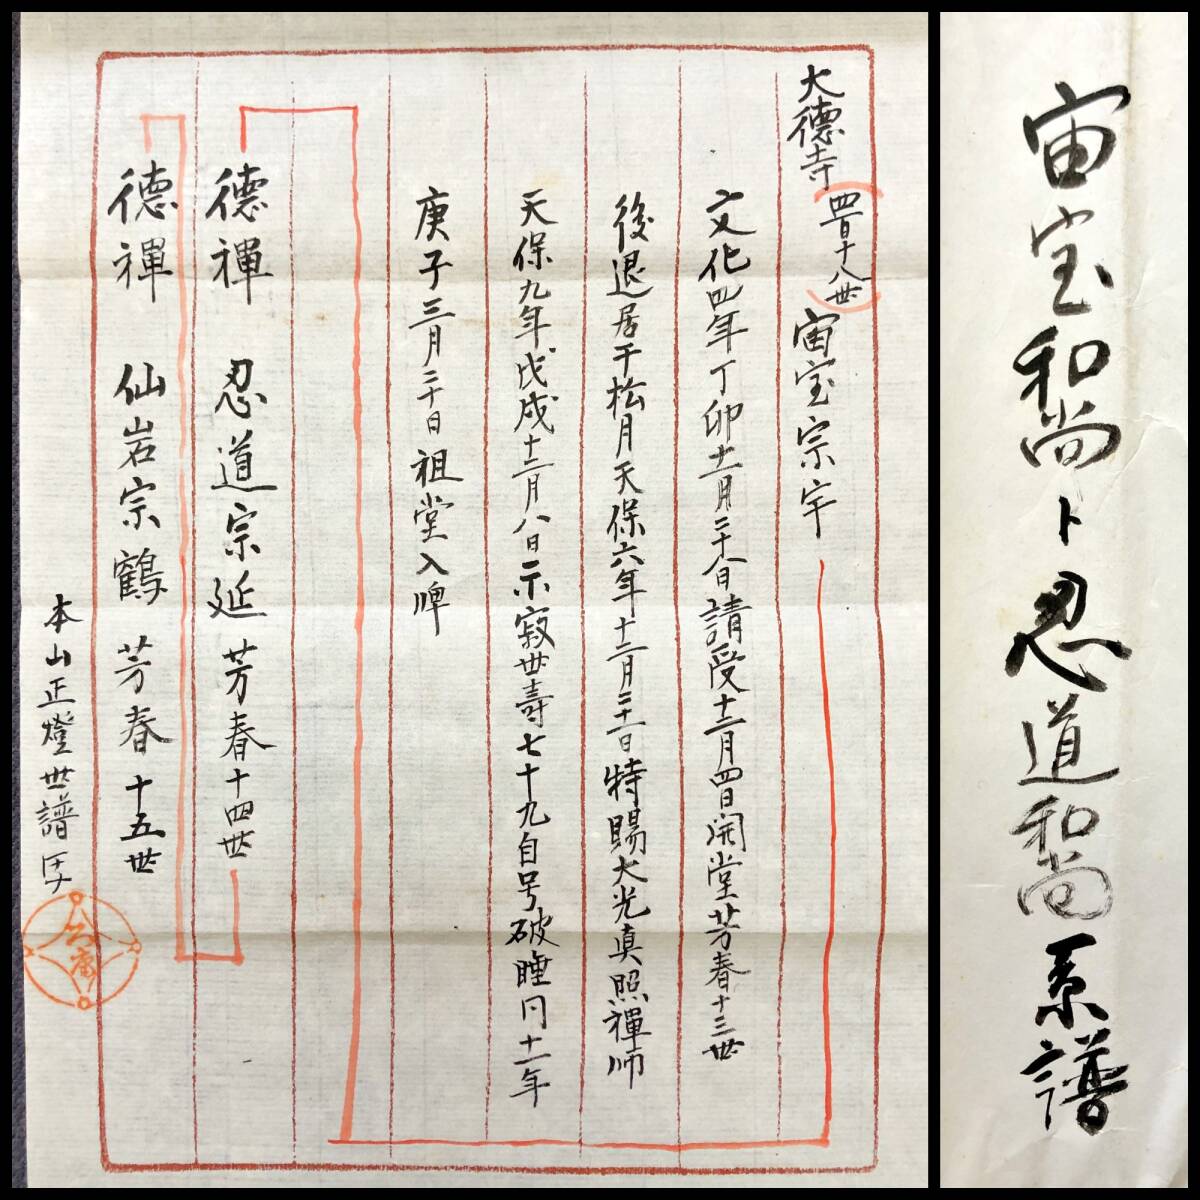 大徳寺 四百十八世 宙宝宗宇
文化四年丁卯十一月二十八日請受十二月四日開堂芳春十三世
後退居于松月天保六年十二月二十一日特賜大光真照禪師
天保九年戊戌十二月八日示寂世壽七十九自号破睡同十一年
庚子三月二十日祖堂入牌
德禪 忍道宗延 芳春十四世
德禪 仙岩宗鶴 芳春十五世
本山正燈世譜
宙宝和尚ト忍道和尚系譜